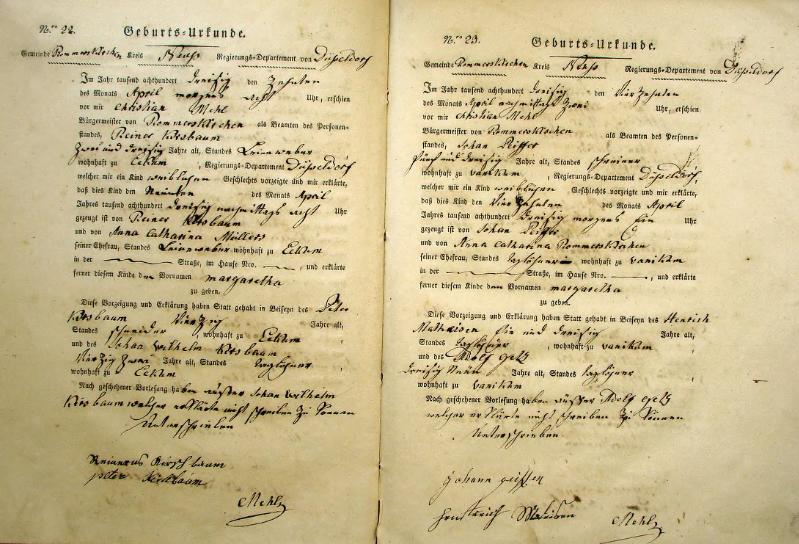 Nro 22. Geburts-Urkunde.
Gemeinde Rommerskirchen Kreis Neuss Regierungs-Departement von Düsseldorf
Im Jahr tausend achthundert dreisig den Zehnten
des Monats April morgens acht Uhr, erschien
vor mir Christian Mehl
Bürgermeister von Rommerskirchen als Beamten des Personen-
standes, Reiner Kirsbaum
Zwei und dreisig Jahre alt, Standes Leineweber
wohnhaft zu Eckum, Regierungs-Departement Düsseldorf
welcher mir ein Kind weiblichen Geschlechts vorzeigte und mir erklärte,
daß dies Kind den Neunten des Monats April
Jahres tausend achthundert dreisig nachmittags acht Uhr
gezeugt ist von Reiner Kirsbaum
und von Anna Catharina Müllers
seiner Ehefrau, Standes Leineweber wohnhaft zu Eckum
in der Straße, im Hause Nro. , und erklärte
ferner diesem Kinde den Vornamen margaretha
zu geben.
Diese Vorzeigung und Erklärung haben Statt gehabt in Beiseyn des Peter
Kirsbaum Vierzig Jahre alt,
Standes schneider, wohnhaft zu Eckum
und des Johan Wilhelm Kirsbaum
Vierzig Zwei Jahre alt, Standes taglöhner
wohnhaft zu Eckum
Nach geschehener Vorlesung haben außer Johan Wilhelm
Kirsbaum welcher erklärte nicht schreiben zu können
Unterschrieben
Reinerus Kirschbaum
peter Kirsbaum
Mehl
Nro 23. Geburts-Urkunde.
Gemeinde Rommerskirchen Kreis Neuss Regierungs-Departement von Düsseldorf
Im Jahr tausend achthundert dreisig den Vierzehnten
des Monats April nachmittags Zwei Uhr, erschien
vor mir Christian Mehl
Bürgermeister von Rommerskirchen als Beamten des Personen-
standes, Johan
Fünf und dreisig Jahre alt, Standes schreiner
wohnhaft zu vanikum, Regierungs-Departement Düsseldorf,
welcher mir ein Kind weiblichen Geschlechts vorzeigte und mir erklärte,
daß dies Kind den Vierzehnten des Monats April
Jahres tausend achthundert dreisig morgens Ein Uhr
gezeugt ist von Johan
und von Anna Catharina Rommerskirchen
seiner Ehefrau, Standes taglöhner wohnhaft zu vanikum
in der Straße, im Hause Nro. , und erklärte
ferner diesem Kinde den Vornamen margaretha
zu geben.
Diese Vorzeigung und Erklärung haben Statt gehabt in Beiseyn des Henrich
Matheisen Ein und dreisig Jahre alt,
Standes taglöhner, wohnhaft zu vanikum
und des Adolf
dreisig Neun Jahre alt, Standes taglöhner
wohnhaft zu vanikum
Nach geschehener Vorlesung haben außer Adolf
welcher erklärte nicht schreiben zu können
Unterschrieben
Johann
Mehl